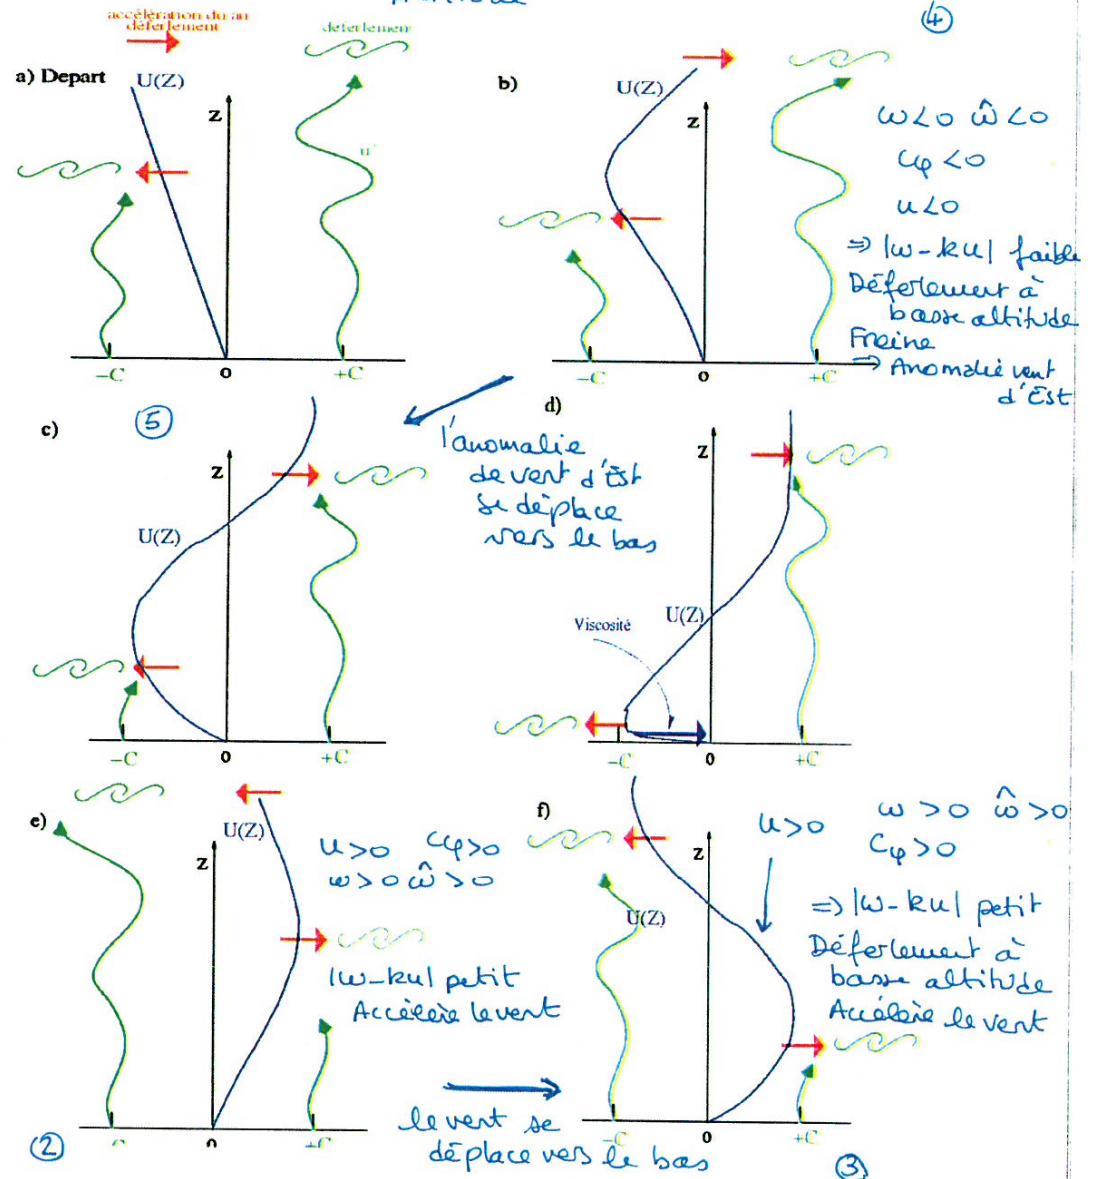 ④
accélération du au
déferlement
déferlement
a) Depart
U(Z)
Z
u'
-C
0
+C
b)
U(Z)
Z
-C
0
+C
ω<0 ω̂<0
Cφ<0
u<0
⇒ |ω-ku| faible
Déferlement à
basse altitude
Freine
⇒ Anomalie vent
d'Est
⑤
c)
U(Z)
Z
-C
0
+C
l'anomalie
de vent d'Est
se déplace
vers le bas
d)
Z
U(Z)
Viscosité
-C
0
+C
e)
U(Z)
Z
u>0 Cφ>0
ω>0 ω̂>0
|ω-ku| petit
Accélère le vent
0
+C
②
le vent se
déplace vers le bas
f)
Z
U(Z)
-C
0
+C
u>0
ω>0 ω̂>0
Cφ>0
⇒ |ω-ku| petit
Déferlement à
basse altitude
Accélère le vent
③